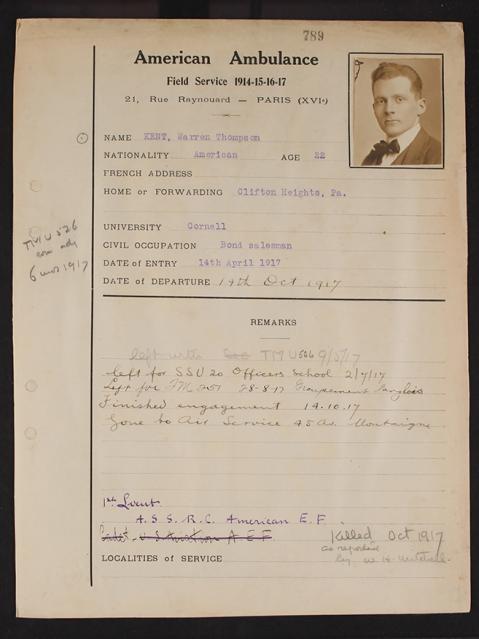 789
American Ambulance
Field Service 1914-15-16-17
21, Rue Raynouard — PARIS (XVIe)
NAME KENT, Warren Thompson
NATIONALITY American AGE 22
FRENCH ADDRESS
HOME or FORWARDING Clifton Heights, Pa.
TMU 526
6 mos 1917
UNIVERSITY Cornell
CIVIL OCCUPATION Bond salesman
DATE of ENTRY 14th April 1917
DATE of DEPARTURE 14th Oct 1917
REMARKS
left with SSU TMU 526 9/5/17
left for SSU 20 Officers School 2/7/17
Left for TM 251 28-8-17 Groupement Langlois
Finished engagement 14.10.17
Gone to Air Service 45 Av. Montaigne
1st Lieut.
A.S.S.R.C. American E.F.
Cadet A E F
Killed Oct 1917
as reported
by W. H. Mitchell.
LOCALITIES of SERVICE